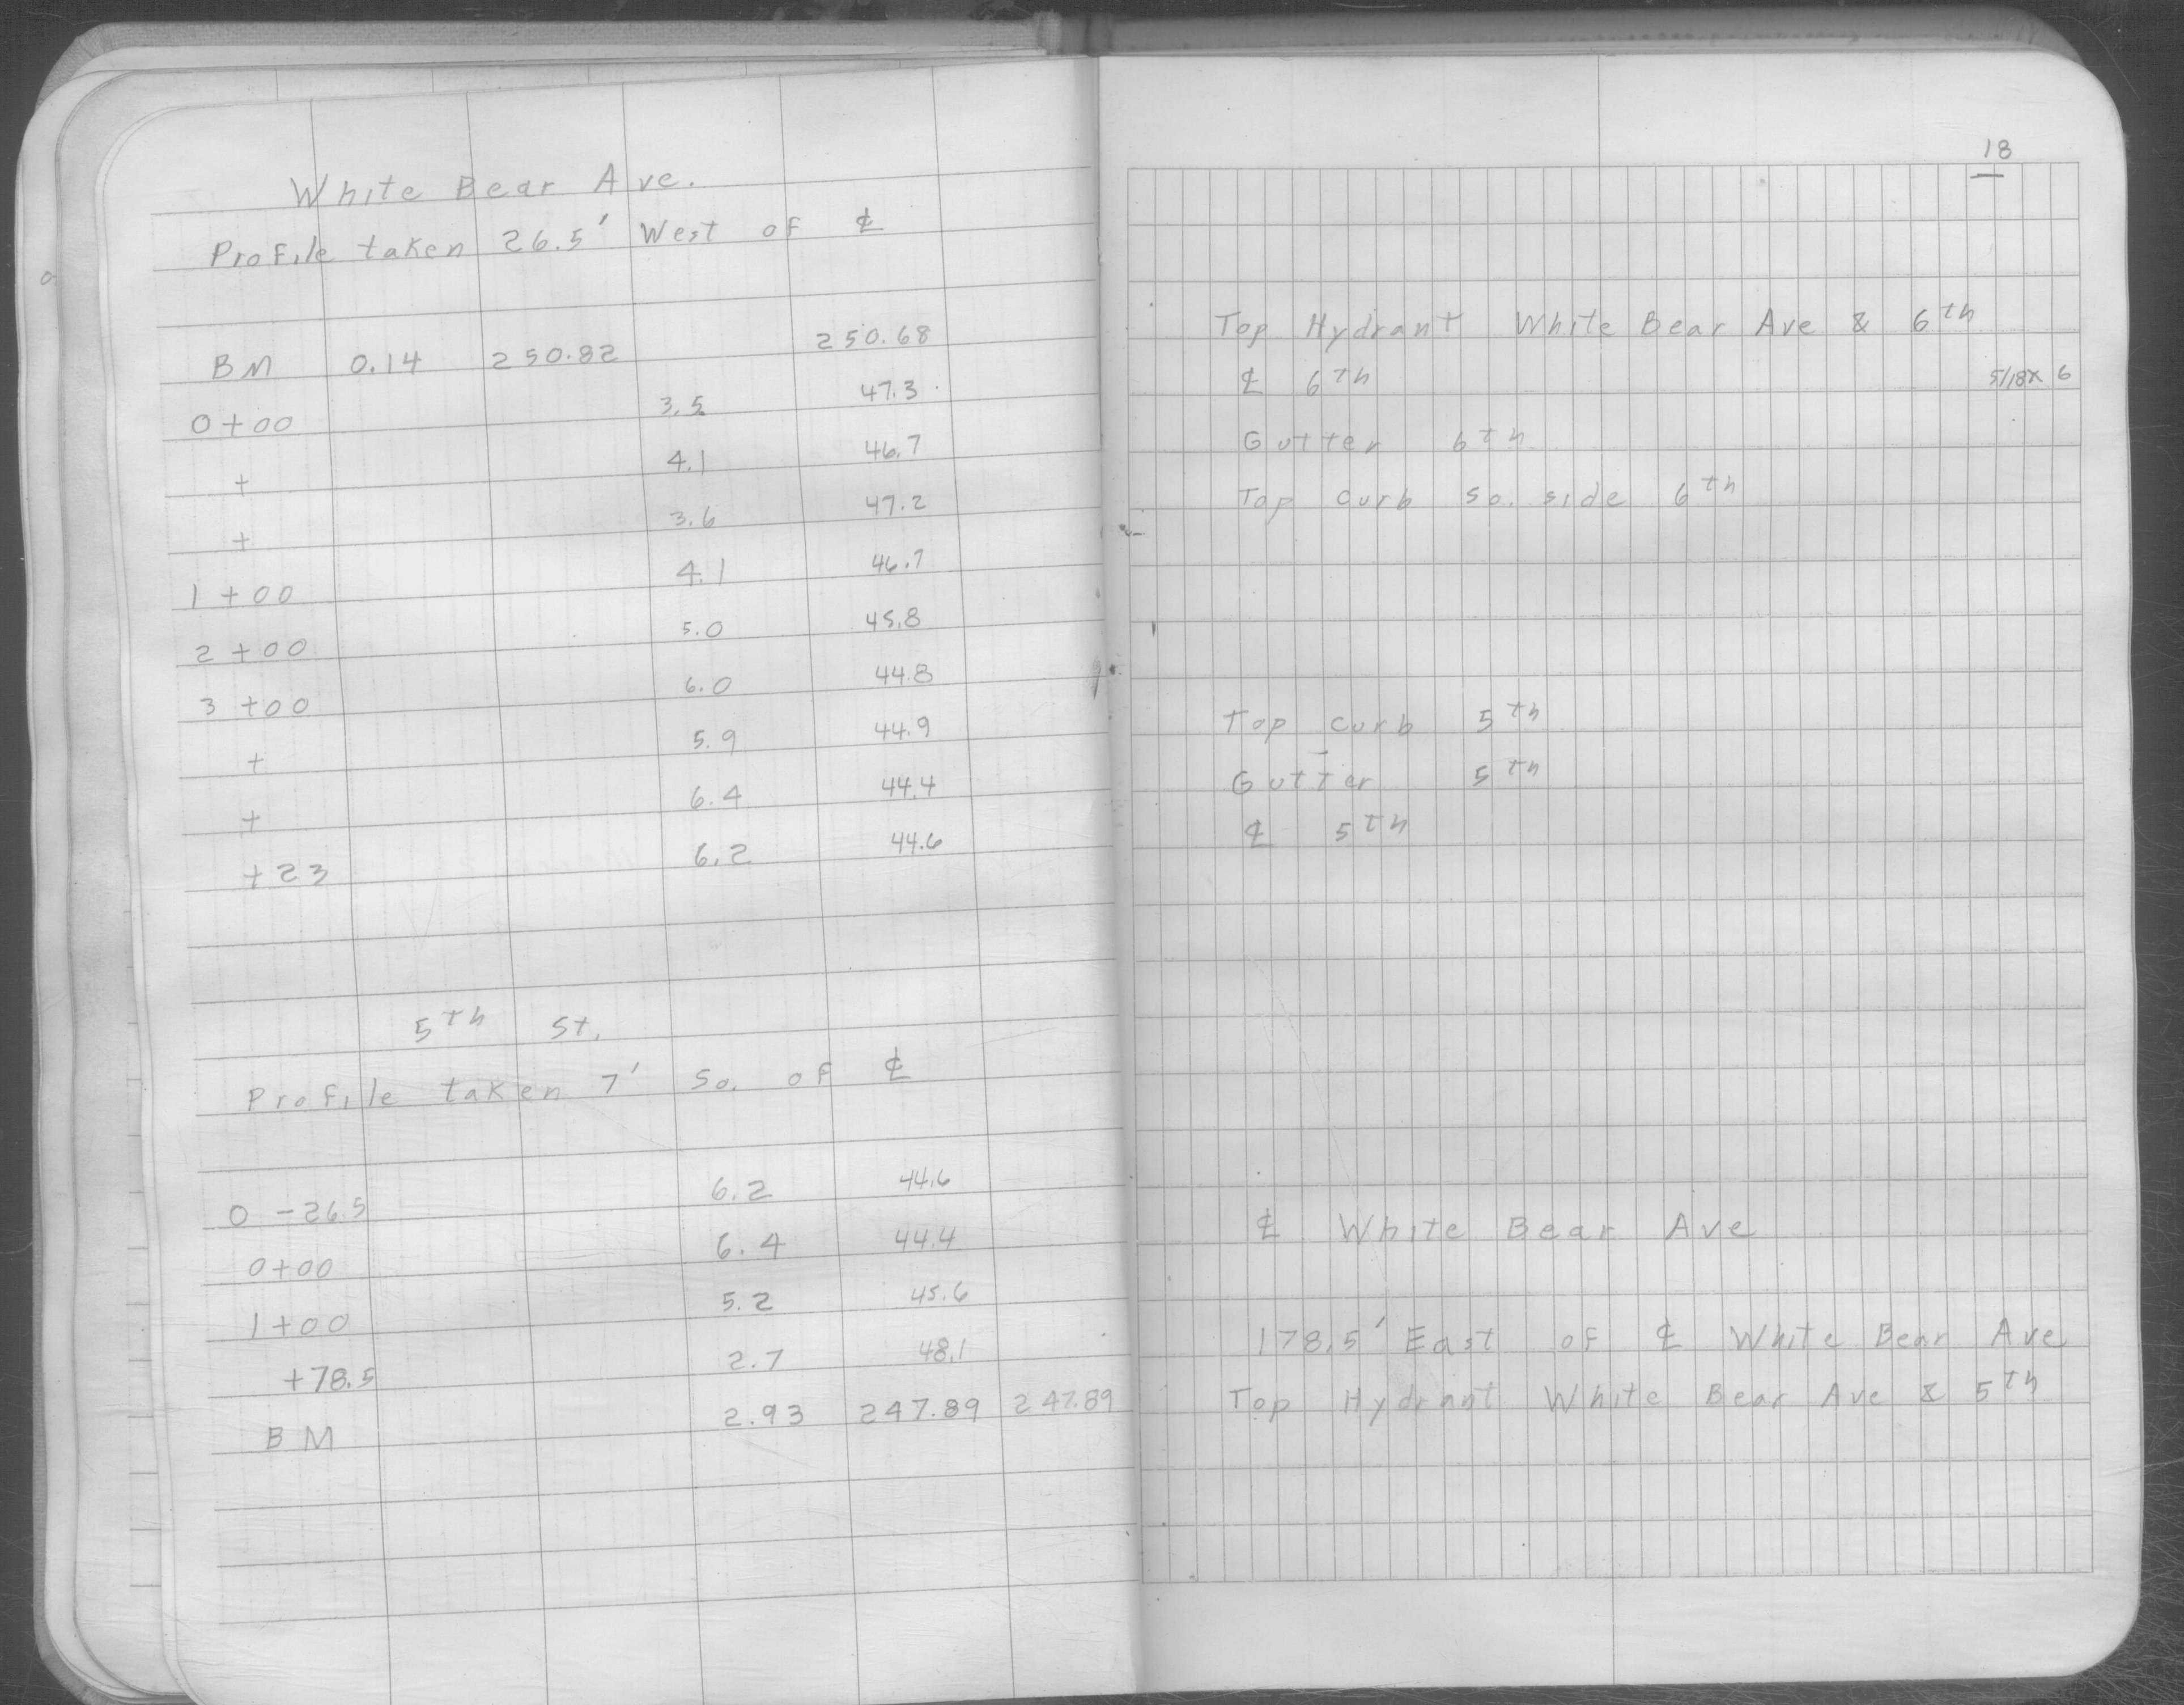 White Bear Ave.
Profile taken 26.5' West of ℄
BM 0.14 250.82 250.68
0+00 3.5 47.3
+ 4.1 46.7
+ 3.6 47.2
1+00 4.1 46.7
2+00 5.0 45.8
3+00 6.0 44.8
+ 5.9 44.9
+ 6.4 44.4
+23 6.2 44.6
5th St.
Profile taken 7' So. of ℄
0 -26.5 6.2 44.6
0+00 6.4 44.4
1+00 5.2 45.6
+78.5 2.7 48.1
BM 2.93 247.89 247.89
18
Top Hydrant White Bear Ave & 6th
℄ 6th
Gutter 6th
Top curb so. side 6th
Top curb 5th
Gutter 5th
℄ 5th
℄ White Bear Ave
178.5' East of ℄ White Bear Ave
Top Hydrant White Bear Ave & 5th